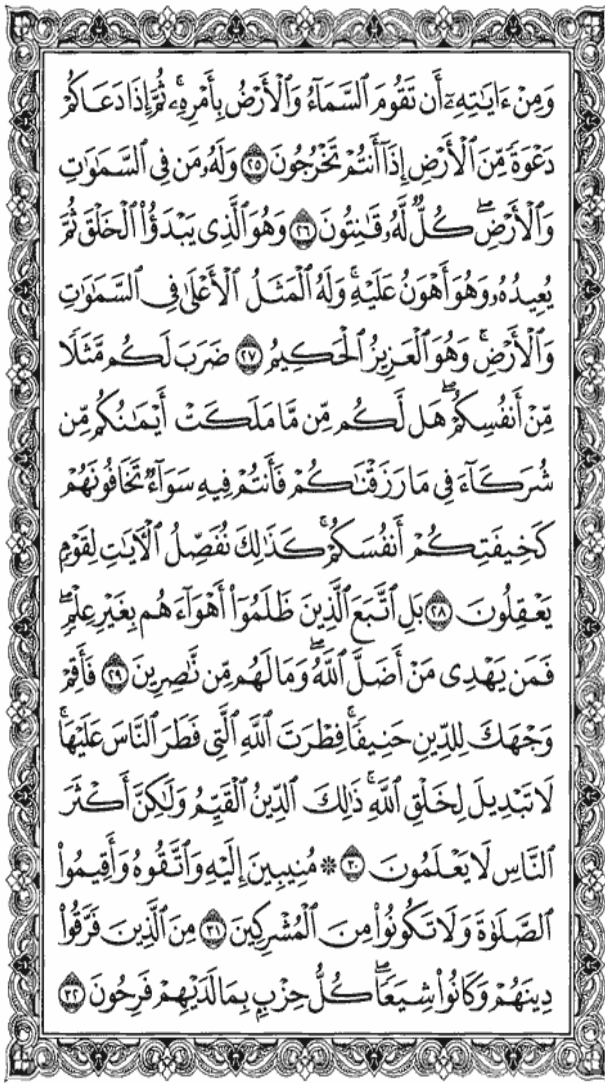 وَمِنْ ءَايَٰتِهِۦٓ أَن تَقُومَ ٱلسَّمَآءُ وَٱلْأَرْضُ بِأَمْرِهِۦ ۚ ثُمَّ إِذَا دَعَاكُمْ
دَعْوَةً مِّنَ ٱلْأَرْضِ إِذَآ أَنتُمْ تَخْرُجُونَ ٢٥ وَلَهُۥ مَن فِى ٱلسَّمَٰوَٰتِ
وَٱلْأَرْضِ ۖ كُلٌّ لَّهُۥ قَٰنِتُونَ ٢٦ وَهُوَ ٱلَّذِى يَبْدَؤُا۟ ٱلْخَلْقَ ثُمَّ
يُعِيدُهُۥ وَهُوَ أَهْوَنُ عَلَيْهِ ۚ وَلَهُ ٱلْمَثَلُ ٱلْأَعْلَىٰ فِى ٱلسَّمَٰوَٰتِ
وَٱلْأَرْضِ ۚ وَهُوَ ٱلْعَزِيزُ ٱلْحَكِيمُ ٢٧ ضَرَبَ لَكُم مَّثَلًا
مِّنْ أَنفُسِكُمْ ۖ هَل لَّكُم مِّن مَّا مَلَكَتْ أَيْمَٰنُكُم مِّن
شُرَكَآءَ فِى مَا رَزَقْنَٰكُمْ فَأَنتُمْ فِيهِ سَوَآءٌ تَخَافُونَهُمْ
كَخِيفَتِكُمْ أَنفُسَكُمْ ۚ كَذَٰلِكَ نُفَصِّلُ ٱلْءَايَٰتِ لِقَوْمٍ
يَعْقِلُونَ ٢٨ بَلِ ٱتَّبَعَ ٱلَّذِينَ ظَلَمُوٓا۟ أَهْوَآءَهُم بِغَيْرِ عِلْمٍ ۖ
فَمَن يَهْدِى مَنْ أَضَلَّ ٱللَّهُ ۖ وَمَا لَهُم مِّن نَّٰصِرِينَ ٢٩ فَأَقِمْ
وَجْهَكَ لِلدِّينِ حَنِيفًا ۚ فِطْرَتَ ٱللَّهِ ٱلَّتِى فَطَرَ ٱلنَّاسَ عَلَيْهَا ۚ
لَا تَبْدِيلَ لِخَلْقِ ٱللَّهِ ۚ ذَٰلِكَ ٱلدِّينُ ٱلْقَيِّمُ وَلَٰكِنَّ أَكْثَرَ
ٱلنَّاسِ لَا يَعْلَمُونَ ٣٠ ۞ مُنِيبِينَ إِلَيْهِ وَٱتَّقُوهُ وَأَقِيمُوا۟
ٱلصَّلَوٰةَ وَلَا تَكُونُوا۟ مِنَ ٱلْمُشْرِكِينَ ٣١ مِنَ ٱلَّذِينَ فَرَّقُوا۟
دِينَهُمْ وَكَانُوا۟ شِيَعًا ۖ كُلُّ حِزْبٍۭ بِمَا لَدَيْهِمْ فَرِحُونَ ٣٢